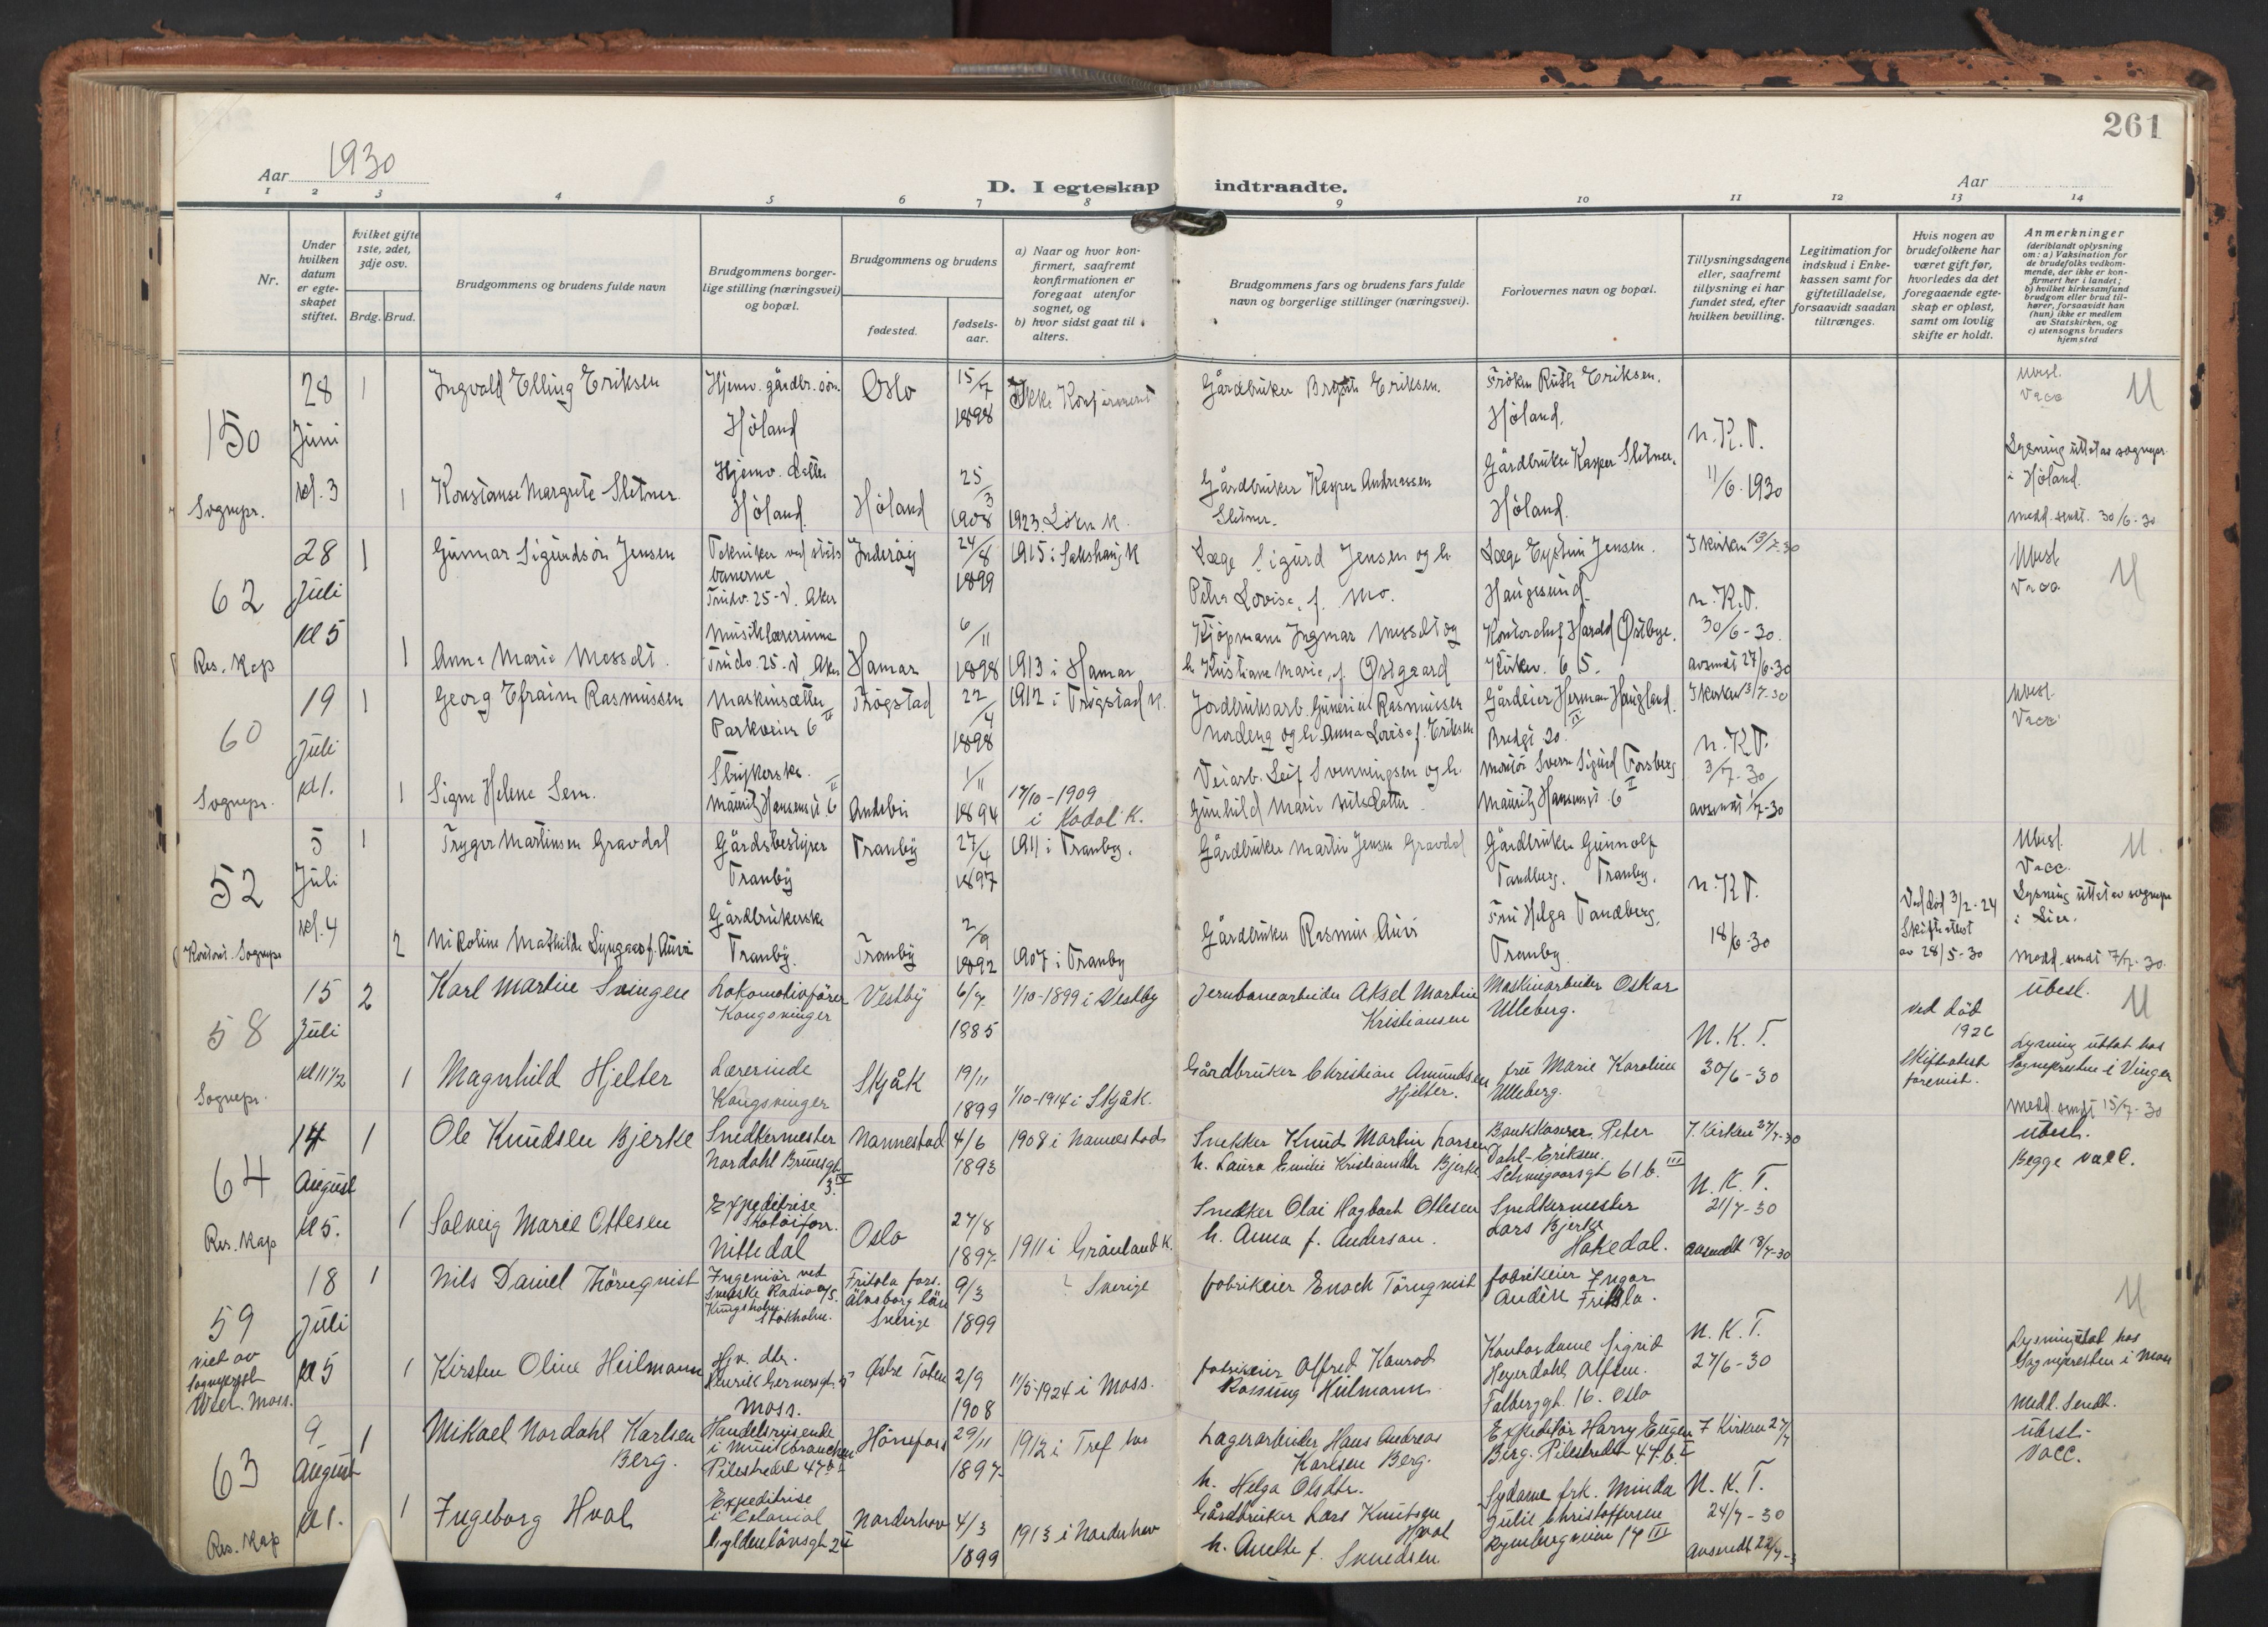 261
Aar 1930
D. I egteskap indtraadte.
Aar
1 2 3 4 5 6 7 8 9 10 11 12 13 14
Nr.
Under hvilken datum er egte-skapet stiftet.
Hvilket gifte 1ste, 2det, 3dje osv.
Brdg. Brud.
Brudgommens og brudens fulde navn
Brudgommens borger-lige stilling (næringsvei) og bopæl.
Brudgommens og brudens
fødested.
fødsels-aar.
a) Naar og hvor kon-firmert, saafremt konfirmationen er foregaat utenfor sognet, og
b) hvor sidst gaat til alters.
Brudgommens fars og brudens fars fulde navn og borgerlige stillinger (næringsvei).
Forlovernes navn og bopæl.
Tillysningsdagene eller, saafremt tillysning ei har fundet sted, efter hvilken bevilling.
Legitimation for indskud i Enke-kassen samt for giftetilladelse, forsaavidt saadan tiltrænges.
Hvis nogen av brudefolkene har været gift før, hvorledes da det foregaaende egte-skap er opløst, samt om lovlig skifte er holdt.
Anmerkninger (deriblandt oplysning om: a) Vaksination for de brudefolks vedkom-mende, der ikke er kon-firmert her i landet; b) hvilket kirkesamfund brudgom eller brud til-hører, forsaavidt han (hun) ikke er medlem av Statskirken, og c) utensogns bruders hjemsted
150 Sognepr.
28 Juni kl. 3
1 Ingvald Elling Eriksen
Hjemv. gårdbr. søn. Høland
Oslo 15/7 1898
Ikke Konfirmert
Gårdbruker Eriksen.
Frøken Ruth Eriksen. Høland.
N.K.T. 11/6. 1930
Ubesl. Vacc
1 Konstanse Margrete Sletner.
Hjemv. datter Høland
Høland 25/3 1908
1923. Löken K.
Gårdbruker Kasper Andreassen Sletner.
Gårdbruker Kasper Sletner. Høland.
Lysning uttat av sognepr. i Höland.
Medd. sendt. 30/6-30
62 Res. Kap
28 Juli kl 5
1 Gunnar Sigurdsøn Jensen
Tekniker ved stats banerne
25-V. Aker
Inderøy 24/8 1899
1915 i Sakshaug K
Læge Sigurd Jensen og h. Petra Lovise, f. Mo.
Læge Eystein Jensen. Haugesund.
I kirken 13/7-30
N.K.T. 30/6-30.
avsendt 27/6-30
Ubesl Vacc.
1 Anna Marie Messelt.
Musiklærerinne
25-V, Aker
Hamar 6/11 1898
1913 i Hamar
Kjøpmann Ingmar Messelt og h. Kristiane Marie, f. Østgaard
Kontorchef Harald Østbye. Kirkev. 65.
60 Sognepr.
19 Juli kl 1.
1 Georg Efraim Rasmussen
Maskinsætter Parkveien 6 II
Trøgstad 22/4 1898
1912 i Trøgstad K.
Jordbruksarb. Gunerius Rasmussen Nordeng og h. Anna Lovise f. Eriksen
Gårdeier Herman Haugland. Bredgt 20. II
I kirken 13/7-30
N.K.T. 3/7-30
avsendt 1/7-30
Ubesl. Vacc
1 Signe Helene Sem.
Strykerske. Mauritz Hansensgt 6 II
Andebu 1/11 1894
17/10-1909 i Kodal K.
Veiarb. Leif Svenningsen og h. Gunhild Marie Nilsdatter
Montör Sverre Sigurd Forsberg Mauritz Hansensgt. 6 I
52 Kontoris. Sognepr.
5 Juli kl. 4
1 Trygve Martinsen Gravdal
Gårdsbestyrer Tranby
Tranby 27/4 1897
1911 i Tranby.
Gårdbruker Martin Jensen Gravdal
Gårdbruker Gunnolf Tandberg. Tranby.
N.K.T. 18/6-30
Ubesl Vacc.
2 Nikoline Mathilde Lyngaas f. Auvi
Gårdbrukerske Tranby.
Tranby 2/9 1892
1907 i Tranby
Gårdbruker Rasmus Auvi
Fru Helga Tandberg. Tranby.
Ved död 3/2-24 Skifteattest av 28/5-30
Lysning uttat av sognepr i Lier.
Medd. sendt 7/7-30.
58 Sognepr.
15 Juli kl 11 1/2
2 Karl Martin Svingen
Lokomotivfører Kongsvinger
Vestby 6/7 1885
1/10-1899 i Vestby
Jernbanearbeider Aksel Martin Kristiansen
Maskinarbeider Oskar Ulleberg.
N.K.T. 30/6-30
ved död 1926 Skifteattest forevist.
Ubesl.
1 Magnhild Hjelter
Lærerinde Kongsvinger
Skjåk 19/11 1899
1/10-1914 i Skjåk.
Gårdbruker Christian Amundsen Hjelter.
fru Marie Karoline Ulleberg.
Lysning uttat hos Sognepresten i Vinger
Medd. sendt 15/7-30
64 Res. Kap
14 August kl 5.
1 Ole Knudsen Bjerke
Snedkermester Nordahl Brunsgt 3. IV
Nannestad 4/6 1893
1908 i Nannestad
Snekker Knud Martin Larsen h. Laura Emilie Kristiansdtr Bjerke
Bankkasserer Peter Dahl-Eriksen. Schwigaarsgt 61 b. III
I. Kirken 27/7-30
N.K.T. 21/7-30
avsendt 18/7-30
Ubesl. Begge vacc.
1 Solveig Marie Ottesen
Expeditrise Skotøiforr. Nittedal
Oslo 27/8 1897
1911 i Grönland K.
Snedker Olai Hagbart Ottesen h. Anna f. Anderson.
Snedkermester Lars Bjerke Hakedal.
59 viet av sogneprest Moss.
18 Juli kl 5
1 Nils Daniel Thörnqvist
Ingeniör ved Svenske Radio A/S. Stokholm.
Fritsla fors. Älvsborg län Sverige 9/3 1899
Sverige
fabrikeier Enoch Törnqvist
fabrikeier Ingar Andèn Fritsla.
N.K.T. 27/6-30
1 Kirsten Oline Heilmann
Hjv. dtr. Henrik Gernersgt. 5 Moss.
Østre Toten 2/9 1908
11/5-1924 i Moss.
fabrikeier Alfred Konrad Rossing Heilmann
Kontordame Sigrid Heyerdahl Alfsen. Falbergsgt. 16. Oslo
Lysning uttat hos Sognepresten i Moss
Medd. sendt.
63 Res. Kap
9 August kl 1.
1 Mikael Nordahl Karlsen Berg.
Handelsreisende i Musikbranchen Pilestredet 47 b I
Hönefoss 29/11 1897
1912 i Tref. K.
Lagerarbeider Hans Andreas Karlsen Berg. h. Helga Olsdtr.
Expeditör Harry Eugen Berg. Pilestredet 47. b. I
I Kirken 27/7
N.K.T. 24/7-30
Ubesl. Vacc.
1 Ingeborg Hval
Expeditrise i Colonial Gyldenlövsgt 24
Norderhov 4/3 1899
1913 i Norderhov
Gårdbruker Lars Knutsen Hval h. Anette f. Svendsen
Sydame frk. Minda Julie Christoffersen 17 III